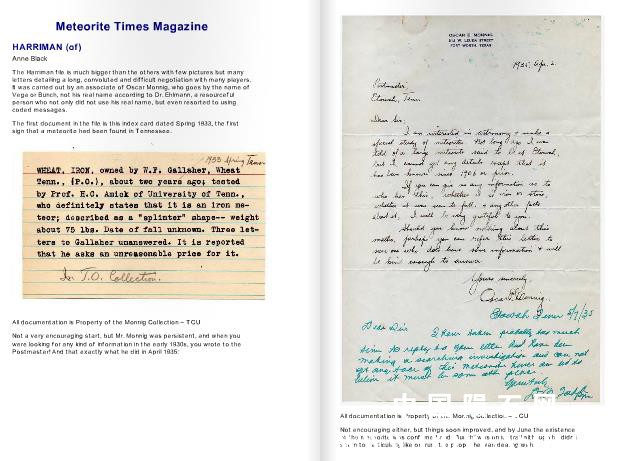 Meteorite Times Magazine
HARRIMAN (of)
Anne Black
The Harriman file is much bigger than the others with few pictures but many
letters detailing a long, convoluted and difficult negotiation with many players.
It was carried out by an associate of Oscar Monnig, who goes by the name of
Vega or Bunch, not his real name according to Dr. Ehlmann, a resourceful
person who not only did not use his real name, but even resorted to using
coded messages.
The first document in the file is this index card dated Spring 1933, the first
sign that a meteorite had been found in Tennessee.
1933 Spring
WHEAT, IRON, owned by W.F. Gallaher, Wheat
Tenn., (P.O.), about two years ago; tested
by Prof. H.C. Amick of University of Tenn.,
who definitely states that it is an iron me-
teor; described as a "splinter" shape-- weight
about 75 lbs. Date of fall unknown. Three let-
ters to Gallaher unanswered. It is reported
that he asks an unreasonable price for it.
In T.O. Collection.
All documentation is Property of the Monnig Collection – TCU
Not a very encouraging start, but Mr. Monnig was persistent, and when you
were looking for any kind of information in the early 1930s, you wrote to the
Postmaster! And that exactly what he did in April 1935:
OSCAR E. MONNIG
FORT WORTH, TEXAS
1935, Apr. 2.
Postmaster,
Etowah, Tenn.
Dear Sir,
I am interested in astronomy & make a
special study of meteorites. Not long ago I was
told of a large meteorite said to be at Etowah,
but I cannot get any details except that it
has been known since 1906 or prior.
If you can give me any information as to
who has this, whether it is iron or stone,
whether it was seen to fall, & any other facts
about it, I will be very grateful to you.
Should you know nothing about this
matter, perhaps you can refer this letter to
someone who does have some information & will
be kind enough to answer.
Yours sincerely,
Oscar E. Monnig.
Etowah Tenn 5/7/35
Dear Sir
I have taken probably too much
time to reply to your letter but have been
making a searching investigation and can not
get any trace of this meteorite
believe it must be some other place.
Yours truly,
中国陨石网
All documentation is Property of the Monnig Collection – TCU
Not encouraging either, but things soon improved, and by June the existence